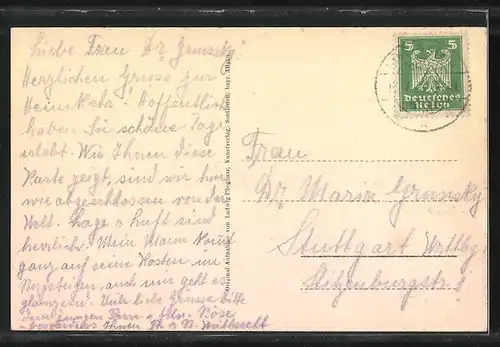 Liebe Frau Dr Grunsky!
Herzlichen Gruss zur
Heimkehr! Hoffentlich
haben Sie schöne Tage
erlebt. Wie Ihnen diese
Karte zeigt, sind wir hier
wie abgeschlossen von der
Welt. Lage & Luft sind
herrlich. Mein Mann kommt
ganz auf seine Kosten im
Bergsteigen, auch mir geht es
glänzend. Viele liebe Grüsse bitte
Ihnen
Original-Aufnahme von Ludwig Kunstverlag, Sonthofen, bayr. Allgäu.
5 5
Deutsches
Reich
Frau
Dr Maria Grunsky
Stuttgart Wttbg.